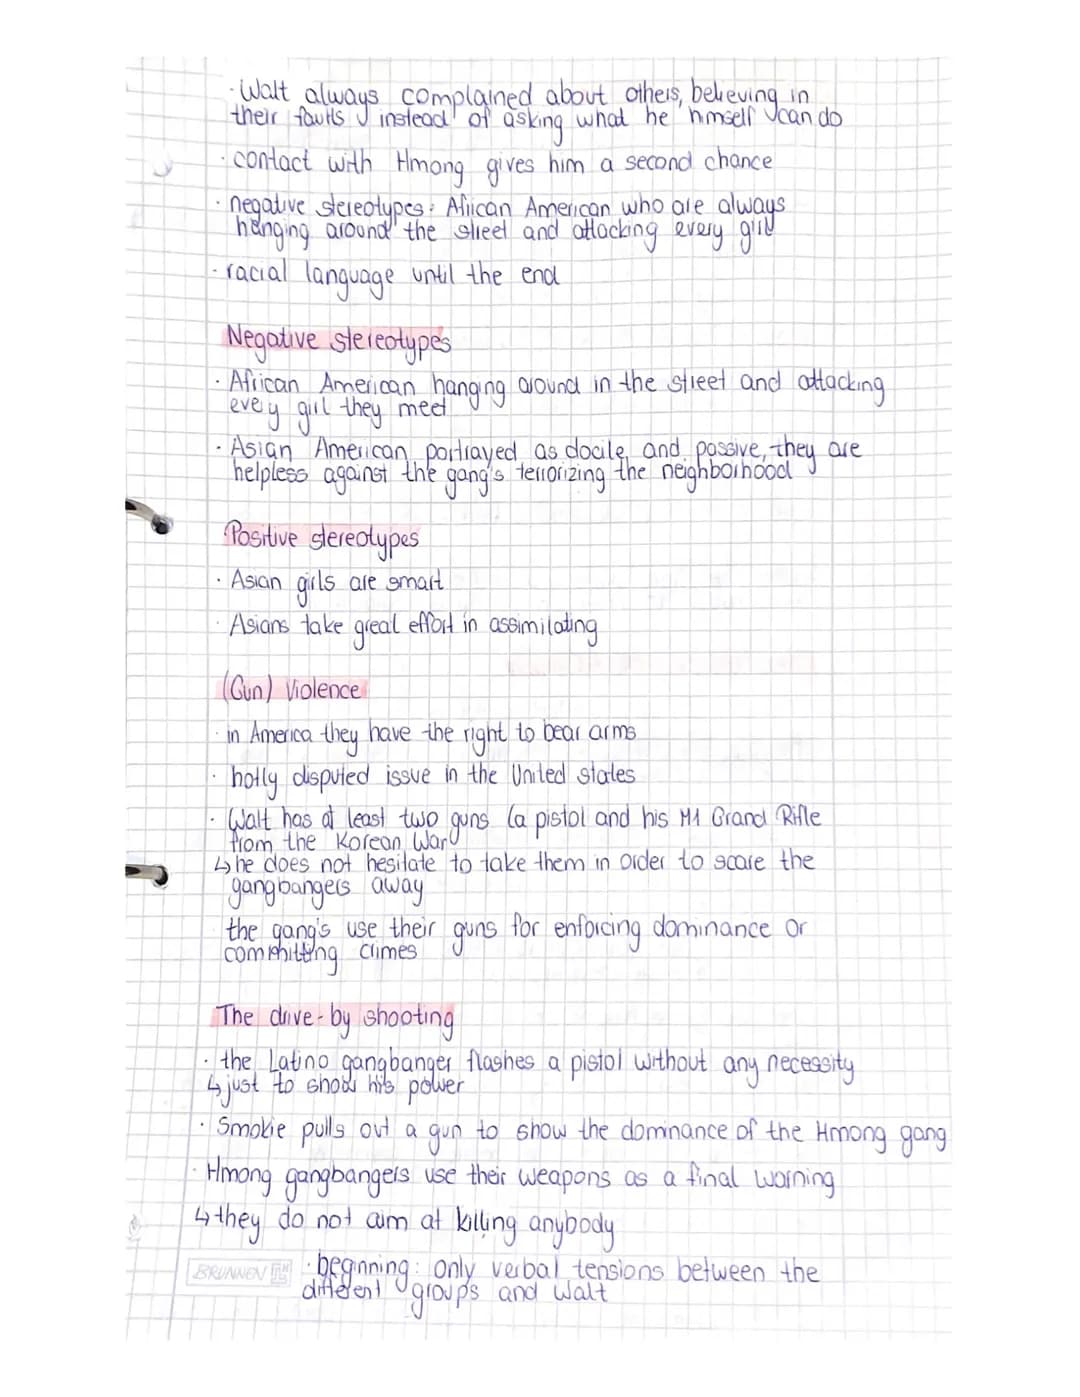 · Walt always complained about others, believing in
their faults instead of asking what he himself can do
· contact with Hmong gives him a second chance
· negative stereotypes: African American who are always
hanging around the street and attacking every girl
· racial language until the end
Negative stereotypes
· African American hanging around in the street and attacking
every girl they meet
· Asian American portrayed as docile and passive, they are
helpless against the gang's terrorizing the neighborhood
Positive stereotypes
· Asian girls are smart
· Asians take great effort in assimilating
(Gun) Violence
· in America they have the right to bear arms
· hotly disputed issue in the United States
· Walt has at least two guns (a pistol and his M1 Grand Rifle
from the Korean War
↳ he does not hesitate to take them in order to scare the
gangbangers away
the gang's use their guns for enforcing dominance or
committing crimes
The drive-by shooting
· the Latino gangbanger flashes a pistol without any necessity
↳ just to show his power
· Smokie pulls out a gun to show the dominance of the Hmong gang
· Hmong gangbangers use their weapons as a final warning
↳ they do not aim at killing anybody
BRUNNEN
· beginning: only verbal tensions between the
different groups and Walt